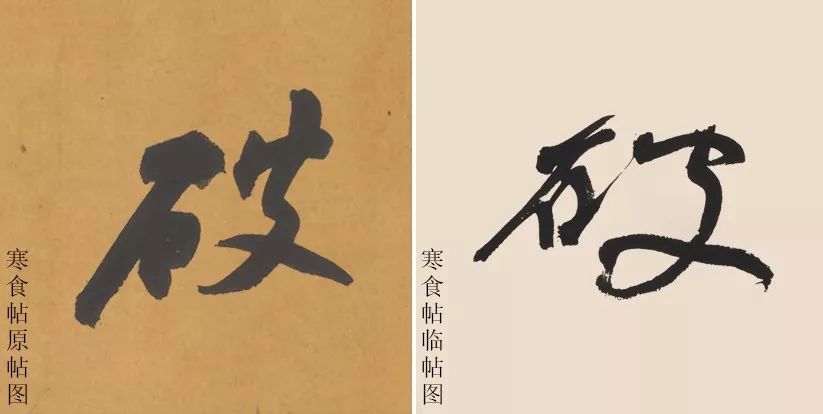 破
寒食帖原帖图
破
寒食帖临帖图